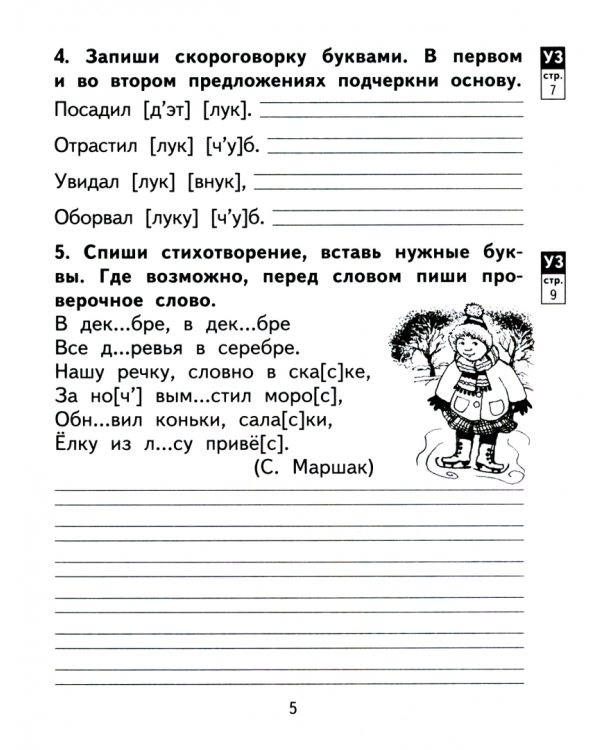 4. Запиши скороговорку буквами. В первом
и во втором предложениях подчеркни основу.
УЗ
стр.
7
Посадил [д’эт] [лук].
Отрастил [лук] [ч’у]б.
Увидал [лук] [внук],
Оборвал [луку] [ч’у]б.
5. Спиши стихотворение, вставь нужные бук-
вы. Где возможно, перед словом пиши про-
верочное слово.
УЗ
стр.
9
В дек...бре, в дек...бре
Все д...ревья в серебре.
Нашу речку, словно в ска[с]ке,
За но[ч’] вым...стил моро[с],
Обн...вил коньки, сала[с]ки,
Ёлку из л...су привё[с].
(С. Маршак)
5